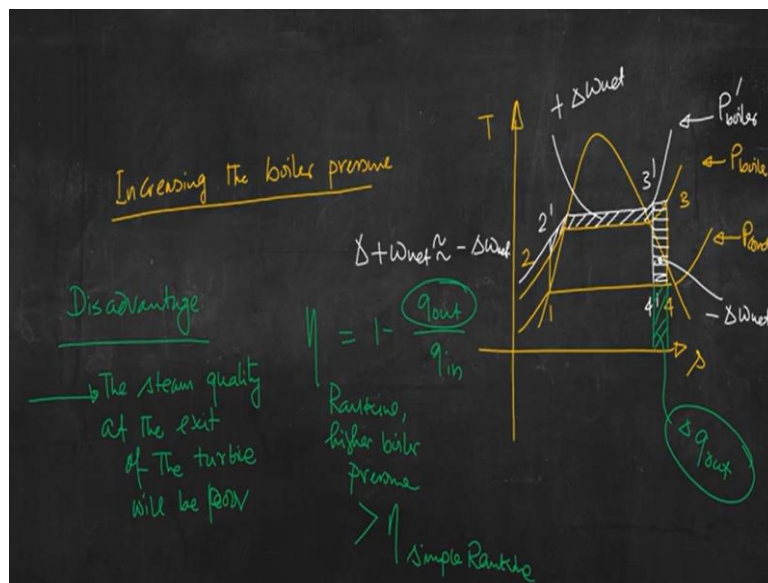 Increasing the boiler pressure
Disadvantage
→ The steam quality
at the exit
of the turbine
will be poor
Δ+wnet ≈ -Δwnet
η = 1 - qout/qin
Rankine,
higher boiler
pressure
> η simple Rankine
T
+ΔWnet
P'boiler
Pboile
Pcond
2'
3'
3
2
1
4'
4
-ΔWnet
s
Δqout